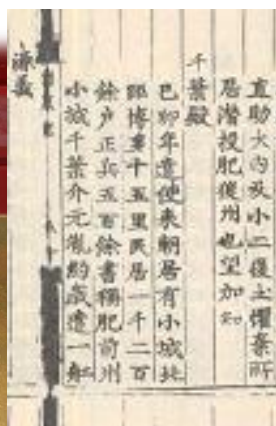 直助大內及小二復土懼棄所
居潜投肥後州也望加知
千葉殿
己卯年遣使來朝居有小城北
距博多十五里民居一千二百
餘戶正兵五百餘書稱肥前州
小城千葉介元胤約歲遣一舡
源義